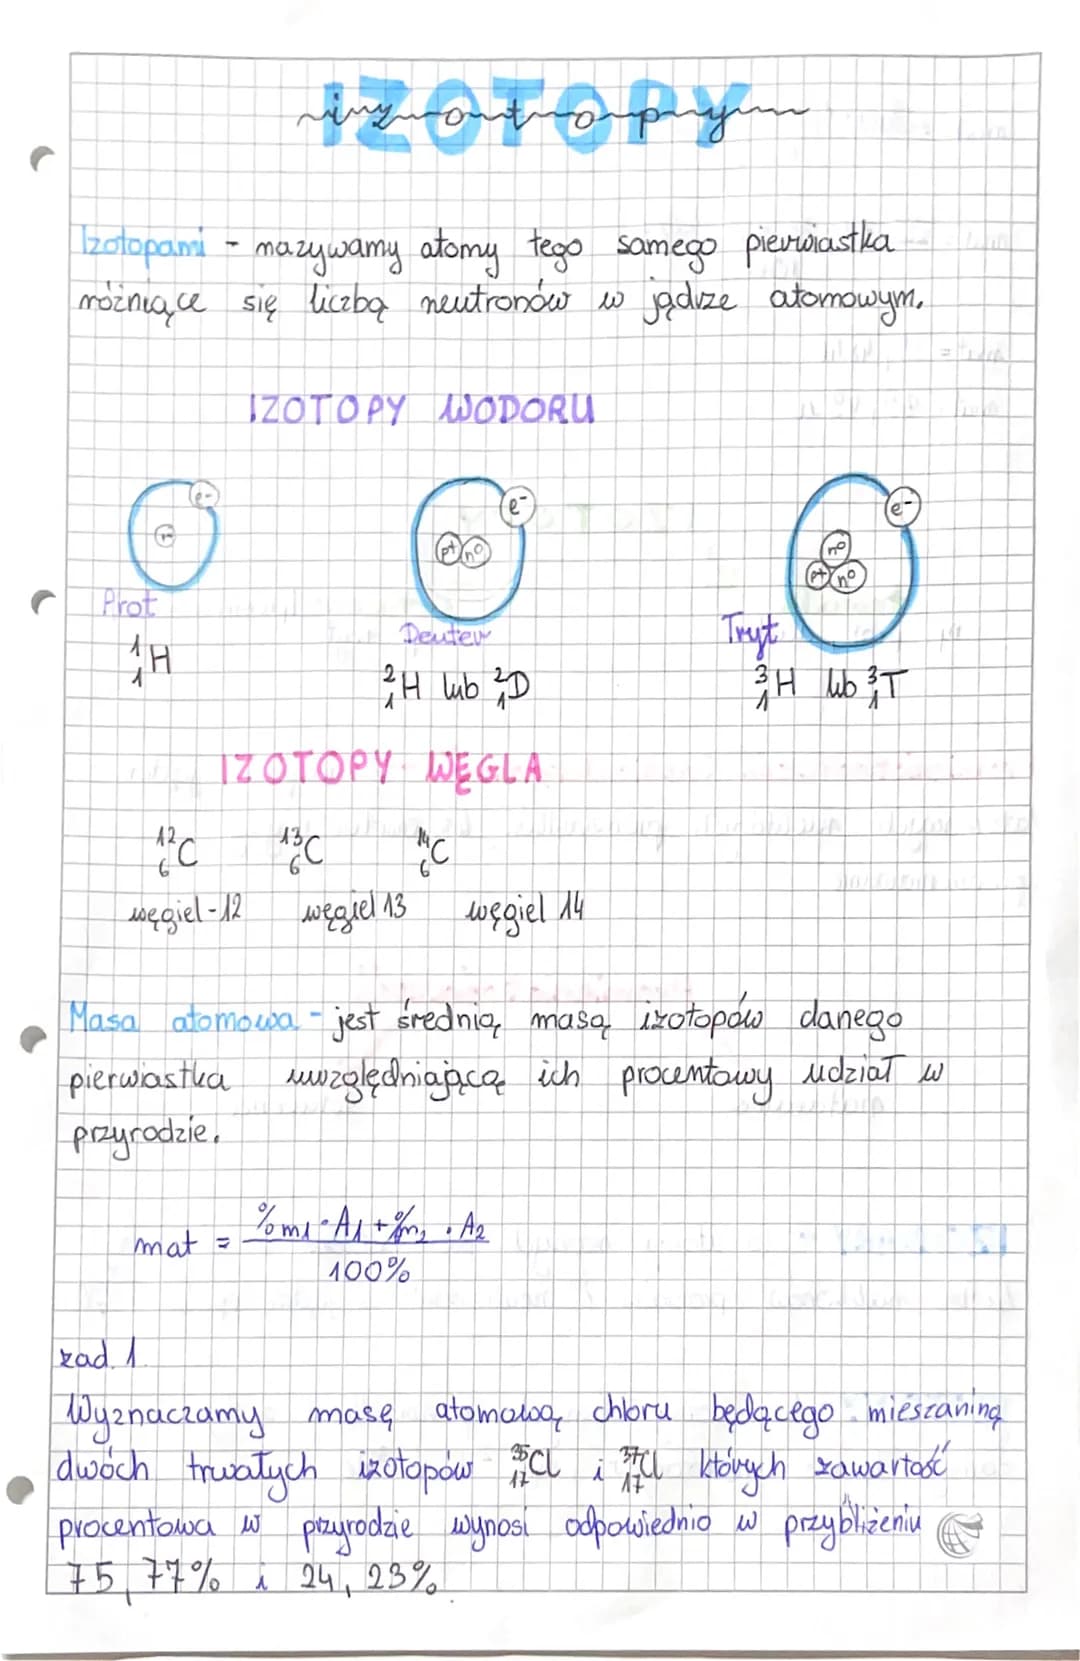 IZOTOPY
izotopy
Izotopami - nazywamy atomy tego samego pierwiastka
różniące się liczbą neutronów w jądrze atomowym.
IZOTOPY WODORU
e- e- e-
p+ n° n° p+ n°
Prot Deuter Tryt
¹₁H ²₁H lub ²₁D ³₁H lub ³₁T
IZOTOPY WĘGLA
¹²₆C ¹³₆C ¹⁴₆C
węgiel-12 węgiel 13 węgiel 14
Masa atomowa - jest średnią masą izotopów danego
pierwiastka uwzględniającą ich procentowy udział w
przyrodzie.
mat = %m₁ · A₁ + %m₂ · A₂
100%
zad. 1.
Wyznaczamy masę atomową chloru będącego mieszaniną
dwóch trwałych izotopów ³⁵₁₇Cl i ³⁷₁₇Cl których zawartość
procentowa w przyrodzie wynosi odpowiednio w przybliżeniu
75,77% i 24,23%